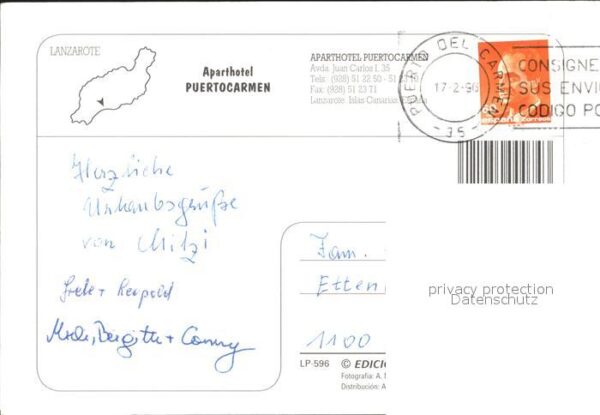 LANZAROTE
Aparthotel
PUERTOCARMEN
APARTHOTEL PUERTOCARMEN
Avda. Juan Carlos I, 35
Tels. (928) 51 22 50 - 51
Fax. (928) 51 23 71
Lanzarote. Islas Canarias.
PUERTO DEL CARMEN
17-2-96
-35-
CONSIGNE
SUS ENVIO
CODIGO PO
españa
Herzliche
Urlaubsgrüße
von Mitzi
+ Leopold
Birgitte + Conny
Fam.
Etten
1100
privacy protection
Datenschutz
LP-596 © EDICIO
Fotografía: A.
Distribución: A